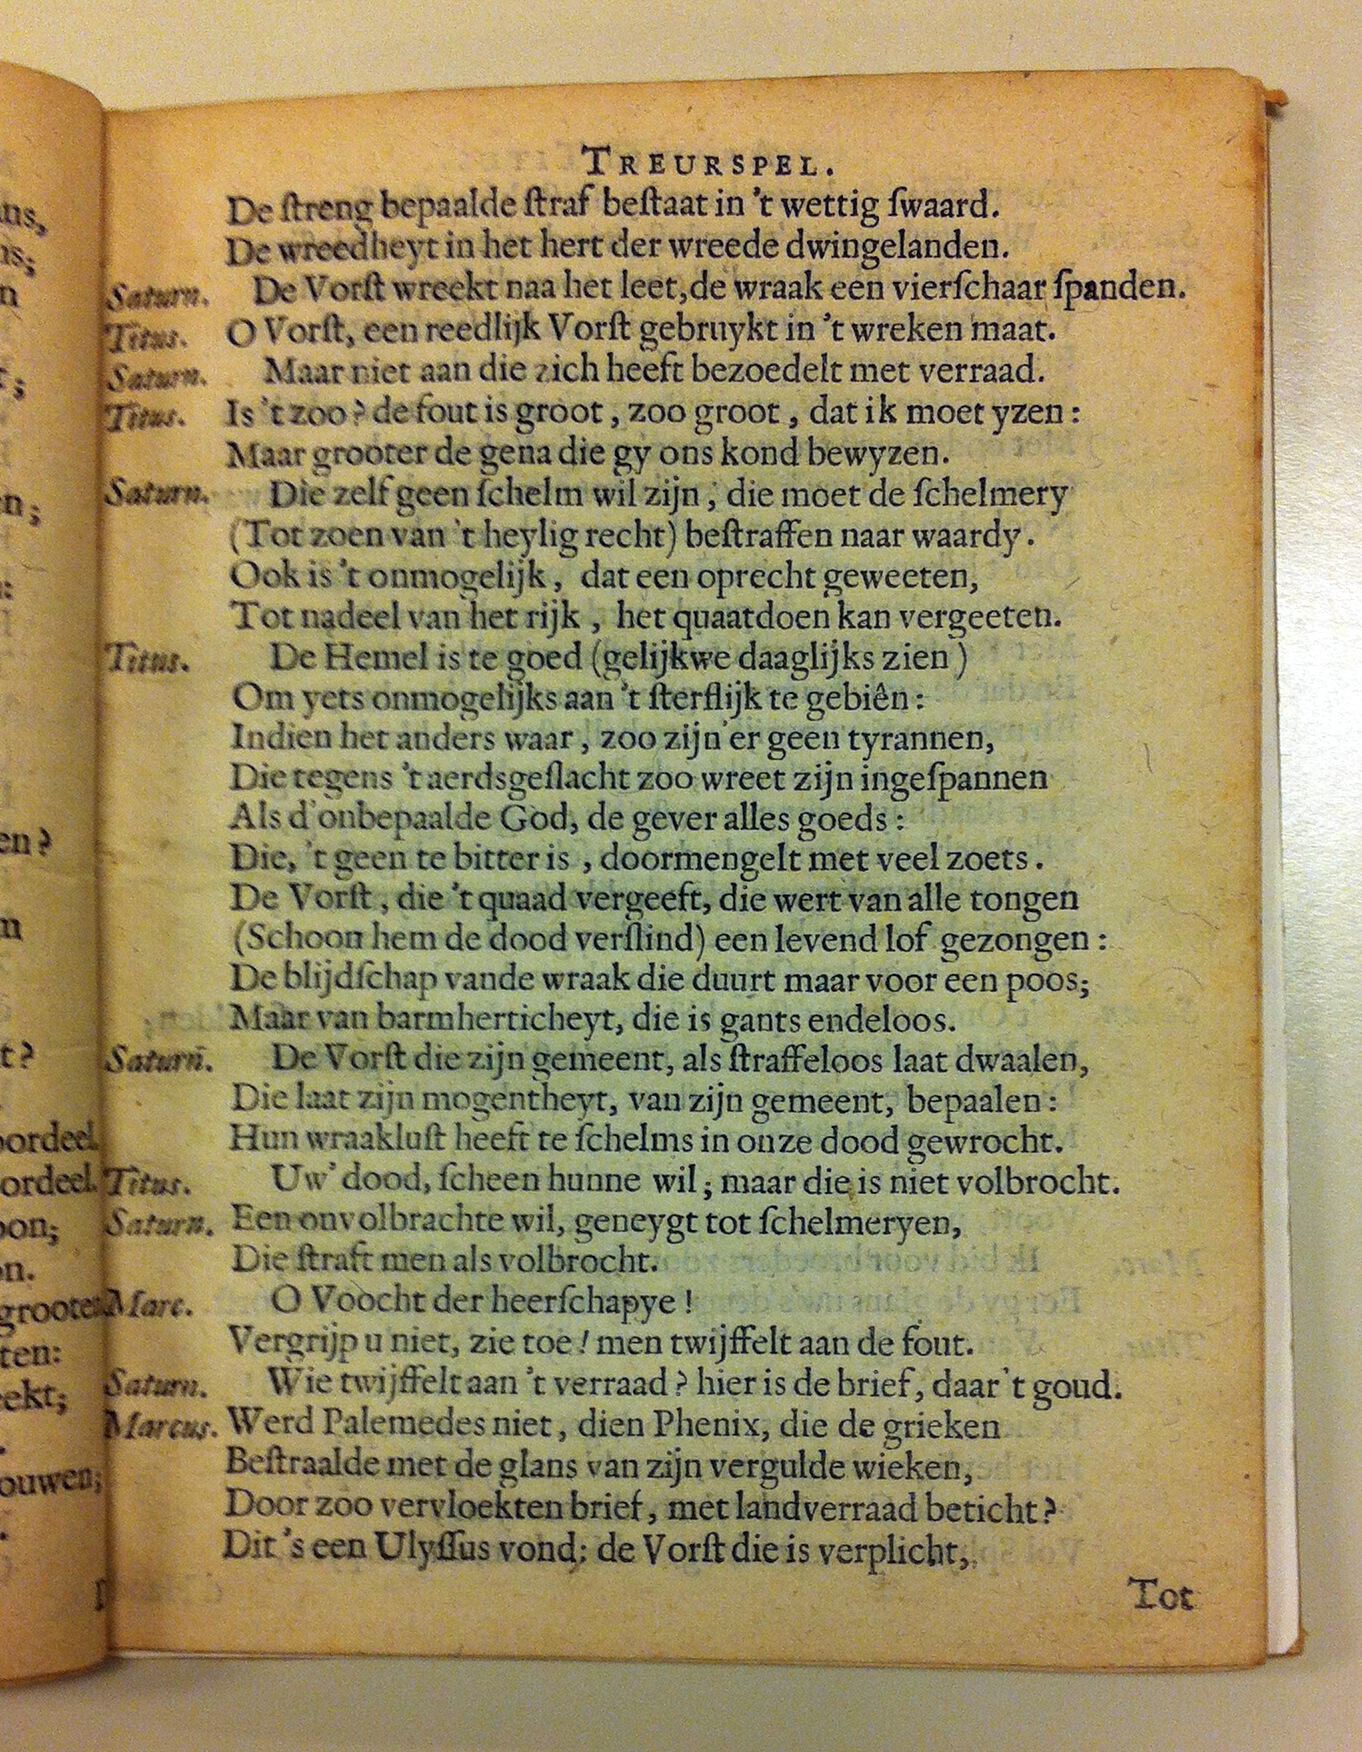 TREURSPEL.
De ſtreng bepaalde ſtraf beſtaat in 't wettig ſwaard.
De wreedheyt in het hert der wreede dwingelanden.
Saturn. De Vorſt wreekt naa het leet, de wraak een vierſchaar ſpanden.
Titus. O Vorſt, een reedlijk Vorſt gebruykt in 't wreken maat.
Saturn. Maar niet aan die zich heeft bezoedelt met verraad.
Titus. Is 't zoo? de fout is groot, zoo groot, dat ik moet yzen:
Maar grooter de gena die gy ons kond bewyzen.
Saturn. Die zelf geen ſchelm wil zijn, die moet de ſchelmery
(Tot zoen van 't heylig recht) beſtraffen naar waardy.
Ook is 't onmogelijk, dat een oprecht geweeten,
Tot nadeel van het rijk, het quaatdoen kan vergeeten.
Titus. De Hemel is te goed (gelijk we daaglijks zien)
Om yets onmogelijks aan 't ſterflijk te gebiên:
Indien het anders waar, zoo zijn'er geen tyrannen,
Die tegens 't aerdsgeſlacht zoo wreet zijn ingeſpannen
Als d'onbepaalde God, de gever alles goeds:
Die, 't geen te bitter is, doormengelt met veel zoets.
De Vorſt, die 't quaad vergeeft, die wert van alle tongen
(Schoon hem de dood verſlind) een levend lof gezongen:
De blijdſchap vande wraak die duurt maar voor een poos;
Maar van barmherticheyt, die is gants endeloos.
Saturn. De Vorſt die zijn gemeent, als ſtraffeloos laat dwaalen,
Die laat zijn mogentheyt, van zijn gemeent, bepaalen:
Hun wraakluſt heeft te ſchelms in onze dood gewrocht.
Titus. Uw' dood, ſcheen hunne wil; maar die is niet volbrocht.
Saturn. Een onvolbrachte wil, geneygt tot ſchelmeryen,
Die ſtraft men als volbrocht.
Marc. O Voocht der heerſchapye!
Vergrijp u niet, zie toe! men twijffelt aan de fout.
Saturn. Wie twijffelt aan 't verraad? hier is de brief, daar 't goud.
Marcus. Werd Palemedes niet, dien Phenix, die de grieken
Beſtraalde met de glans van zijn vergulde wieken,
Door zoo vervloekten brief, met landverraad beticht?
Dit 's een Ulyſſus vond; de Vorſt die is verplicht,
Tot